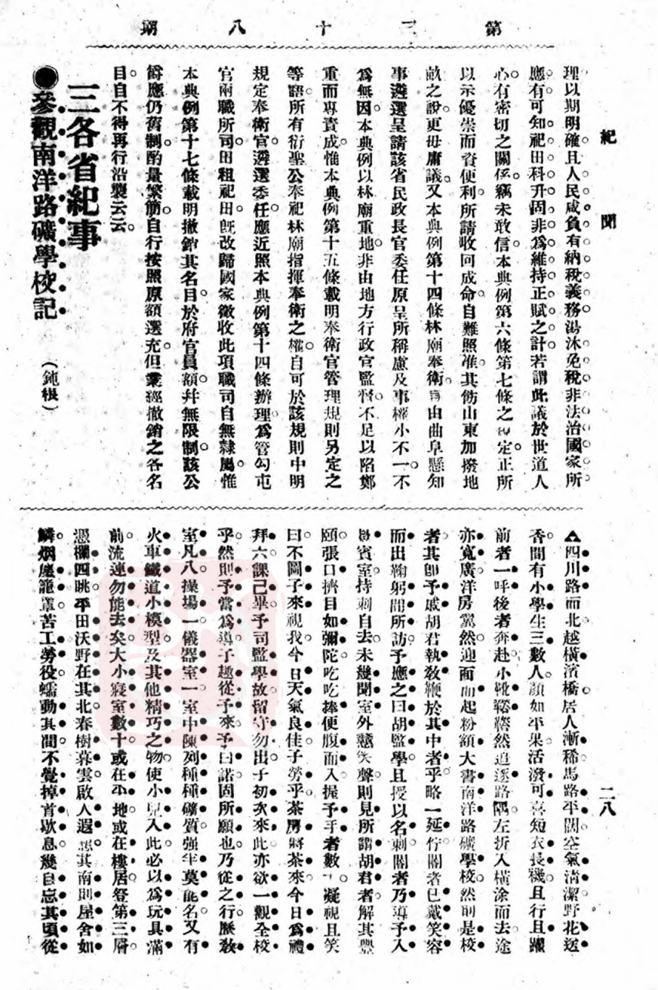 第三十八期
紀聞
二八
理以期明確且人民咸負有納稅義務湯沐免稅非法治國家所
應有可知祀田科升固非爲維持正賦之計若謂此議於世道人
心有密切之關係竊未敢信本典例第六條第七條之規定正所
以示優崇而資便利所請收回成命自難照准其飭山東加撥地
畝之說更毋庸議又本典例第十四條林廟奉衛官由曲阜縣知
事遴選呈請該省民政長官委任原呈所稱慮及事權小不一不
爲無因本典例以林廟重地非由地方行政官監督不足以昭鄭
重而專責成惟本典例第十五條載明奉衛官管理規則另定之
等語所有衍聖公奉祀林廟指揮奉衛之權自可於該規則中明
規定奉衛官遴選委任應近照本典例第十四條辦理爲管勾屯
官兩職所司田租祀田既改歸國家徵收此項職司自無隸屬惟
本典例第十七條載明撤銷其名目於府官員額幷無限制該公
爵應仍舊制酌量繁簡自行按照原額選充但業經撤銷之各名
目自不得再行沿襲云云
三各省紀事
●參觀南洋路礦學校記 (鈍根)
▲四川路而北越橫濱橋居人漸稀馬路平闊空氣清潔野花送
香間有小學生三數人顏如苹果活潑可喜短衣長襪且行且躍
前者一呼後者奔赴小靴橐橐然追逐路隅左折入橫涂而去途
亦寬廣洋房翼然迎面而起粉額大書南洋路礦學校然則是校
者其卽予戚胡君執敎鞭於其中者乎略一延佇閽者已戴笑容
而出鞠躬問所訪予應之曰胡監學且授以名刺閽者乃導予入
賓室持刺自去未幾聞室外戇笑聲則見所謂胡君者解其豐
頤張口擠目如彌陀吃吃捧便腹而入握予手者數凝視且笑
曰不圖子來視我今日天氣良佳子勞乎茶房將茶來今日爲禮
拜六課已畢予司監學故留守勿出子初次來此亦欲一觀全校
乎然則予當爲導子趣從予來予曰諾固所願也乃從之行歷敎
室凡八操場一儀器室一室中陳列種種礦質强半莫能名又有
火車鐵道小模型及其他精巧之物使小兒入此必以爲玩具滿
前流連勿能去矣大小寢室數十或在平地或在樓居登第三層
憑欄四眺平田沃野在其北春樹暮雲啟人遐思其南則屋舍如
鱗烟塵籠罩苦工勞役蠕動其間不覺掉首歎息幾自忘其頃從